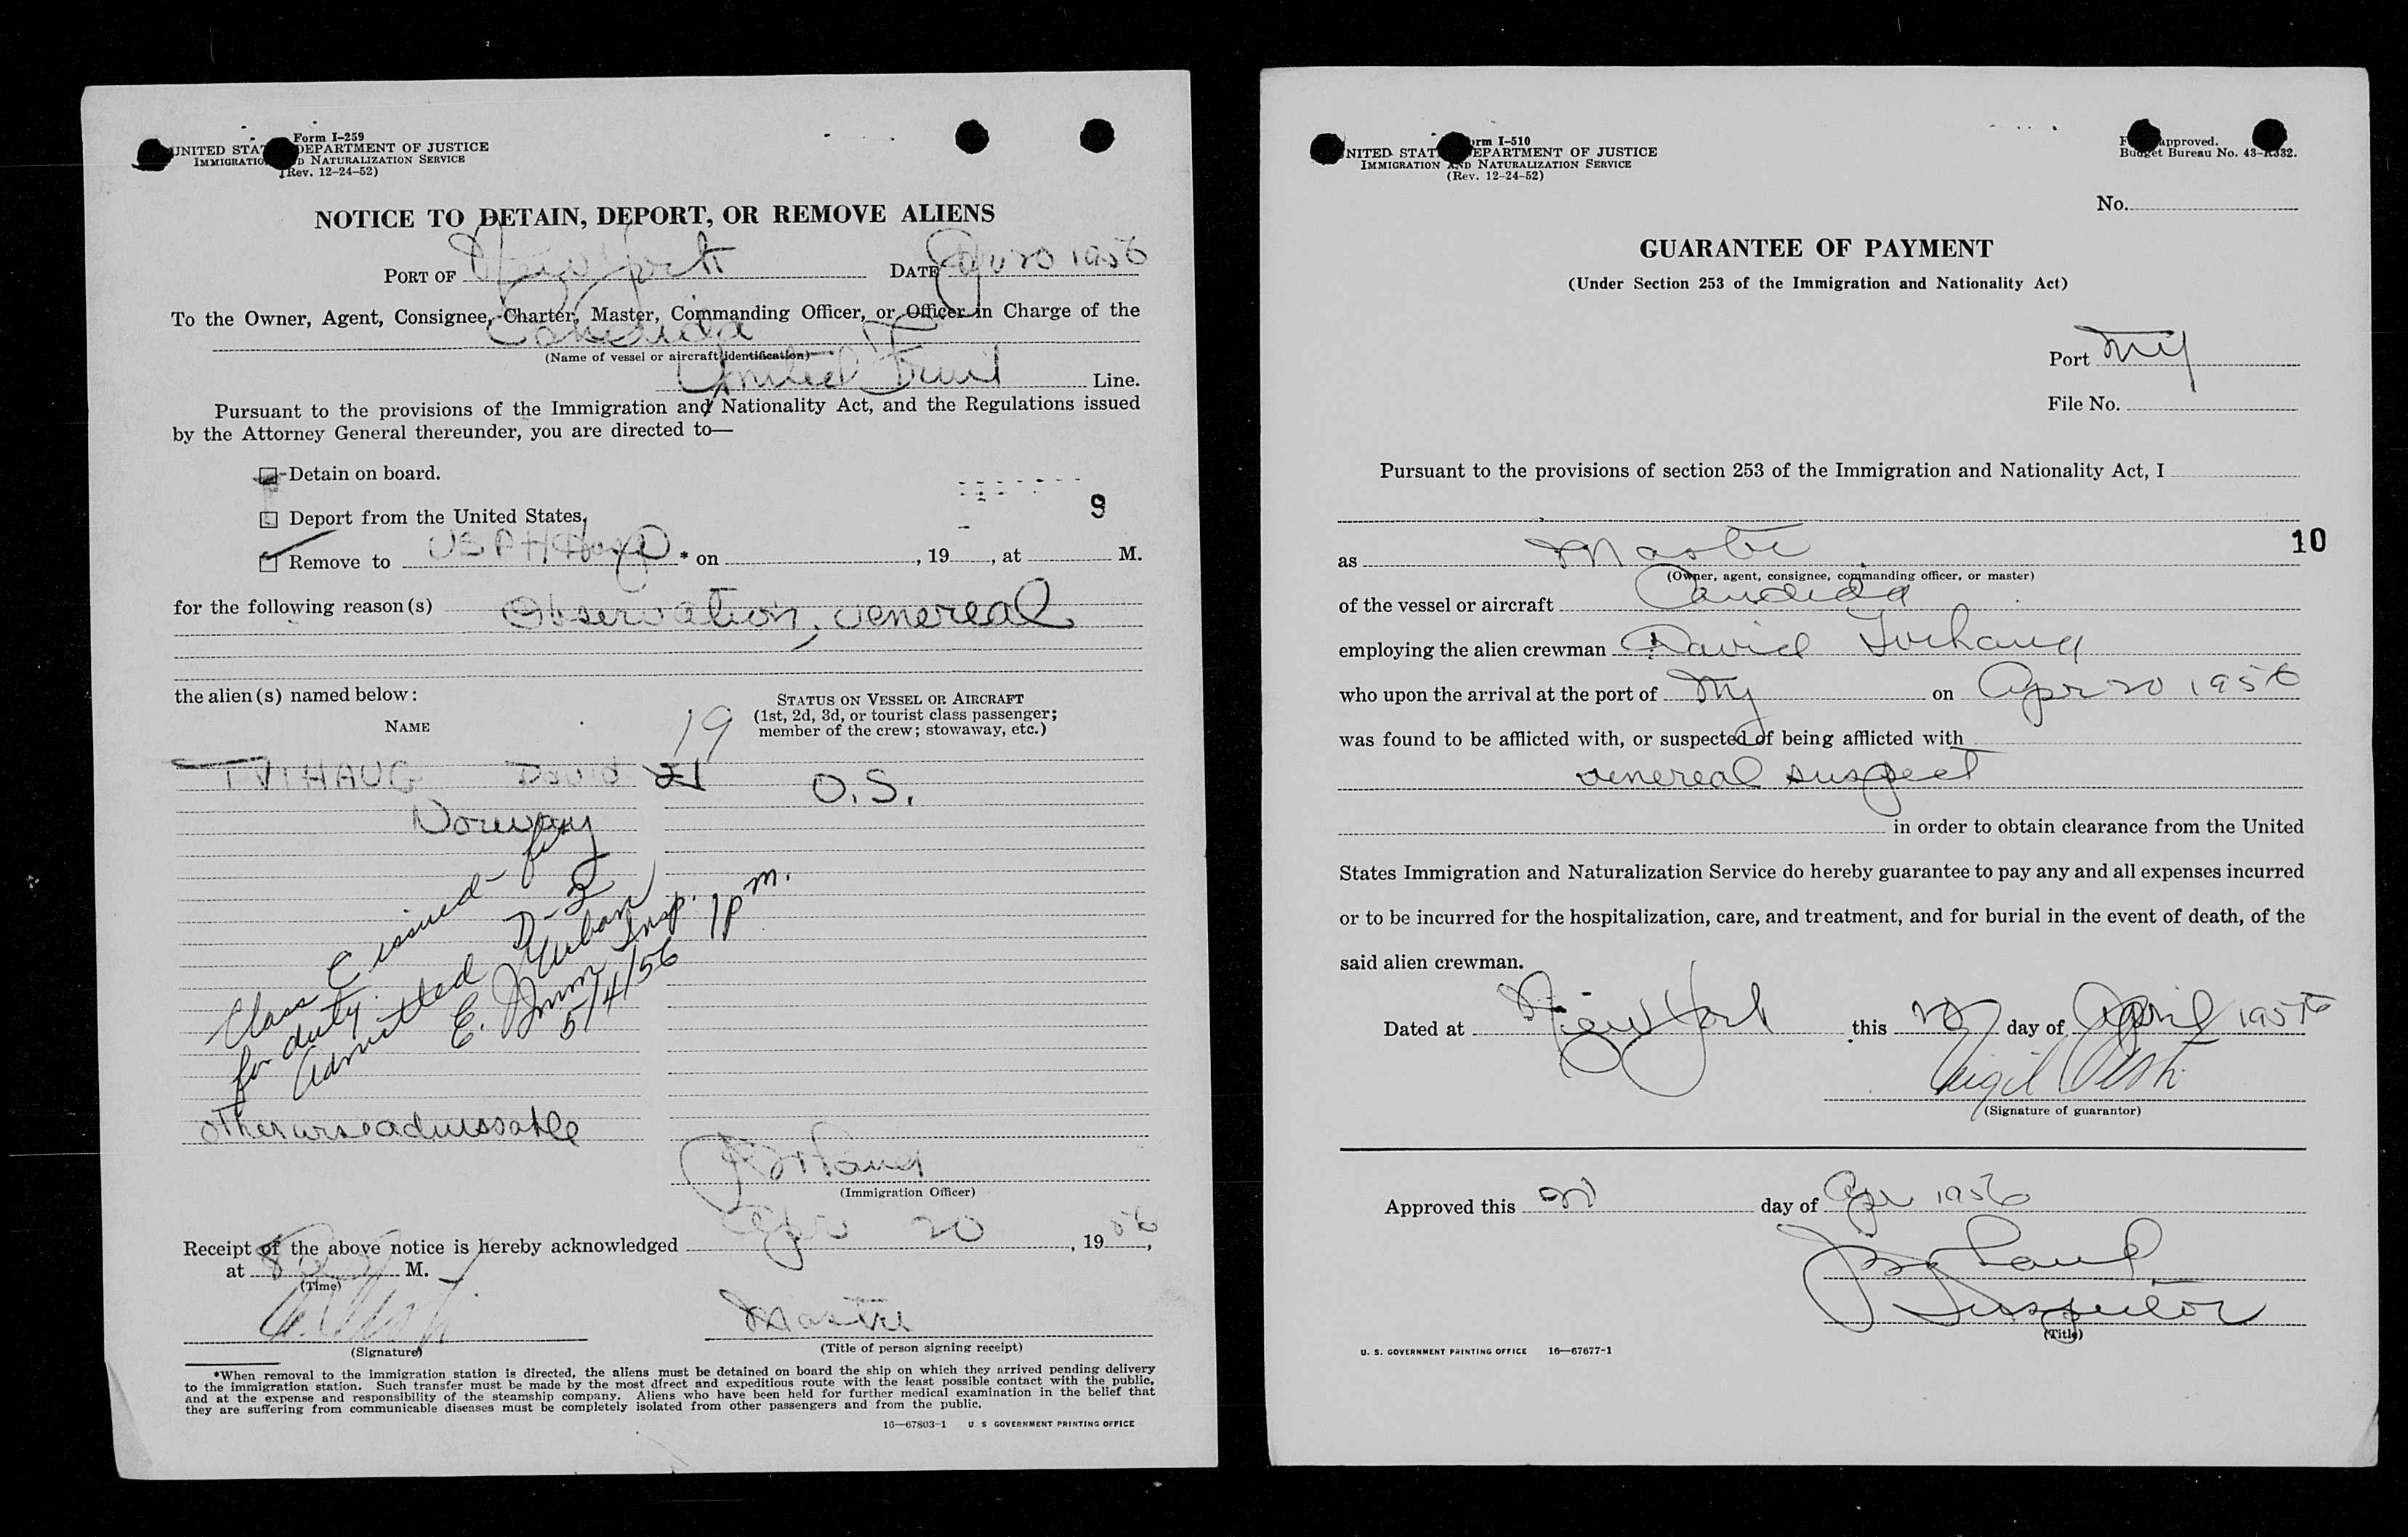 Form I-259
UNITED STATES DEPARTMENT OF JUSTICE
IMMIGRATION AND NATURALIZATION SERVICE
(Rev. 12-24-52)
NOTICE TO DETAIN, DEPORT, OR REMOVE ALIENS
PORT OF New York DATE Apr 20 1956
To the Owner, Agent, Consignee, Charter, Master, Commanding Officer, or Officer in Charge of the
Candida
(Name of vessel or aircraft identification)
United Fruit Line.
Pursuant to the provisions of the Immigration and Nationality Act, and the Regulations issued
by the Attorney General thereunder, you are directed to—
Detain on board.
9
Deport from the United States.
Remove to USPH Hosp * on , 19 , at M.
for the following reason(s) Observation, venereal
the alien(s) named below:
STATUS ON VESSEL OR AIRCRAFT
(1st, 2d, 3d, or tourist class passenger;
member of the crew; stowaway, etc.)
NAME
19
TVIHAUG David 21 O.S.
Norway
Class C issued - fit
for duty.
Admitted D-2
E. Urban
Imm Insp.
5/4/56 1 pm.
otherwise admissable
(Immigration Officer)
Receipt of the above notice is hereby acknowledged Apr 20, 1956,
at 8 M.
(Time)
Master
(Signature) (Title of person signing receipt)
*When removal to the immigration station is directed, the aliens must be detained on board the ship on which they arrived pending delivery
to the immigration station. Such transfer must be made by the most direct and expeditious route with the least possible contact with the public,
and at the expense and responsibility of the steamship company. Aliens who have been held for further medical examination in the belief that
they are suffering from communicable diseases must be completely isolated from other passengers and from the public.
16—67803-1 U. S GOVERNMENT PRINTING OFFICE
Form I-510
UNITED STATES DEPARTMENT OF JUSTICE
IMMIGRATION AND NATURALIZATION SERVICE
(Rev. 12-24-52)
Form approved.
Budget Bureau No. 43-R332.
No.
GUARANTEE OF PAYMENT
(Under Section 253 of the Immigration and Nationality Act)
Port NY
File No.
Pursuant to the provisions of section 253 of the Immigration and Nationality Act, I
10
as Master
(Owner, agent, consignee, commanding officer, or master)
of the vessel or aircraft Candida
employing the alien crewman David Tvihaug
who upon the arrival at the port of NY on Apr 20 1956
was found to be afflicted with, or suspected of being afflicted with
venereal suspect
in order to obtain clearance from the United
States Immigration and Naturalization Service do hereby guarantee to pay any and all expenses incurred
or to be incurred for the hospitalization, care, and treatment, and for burial in the event of death, of the
said alien crewman.
Dated at New York this 20 day of April 1956
(Signature of guarantor)
Approved this 20 day of Apr 1956
Inspector
(Title)
U. S. GOVERNMENT PRINTING OFFICE 16—67677-1